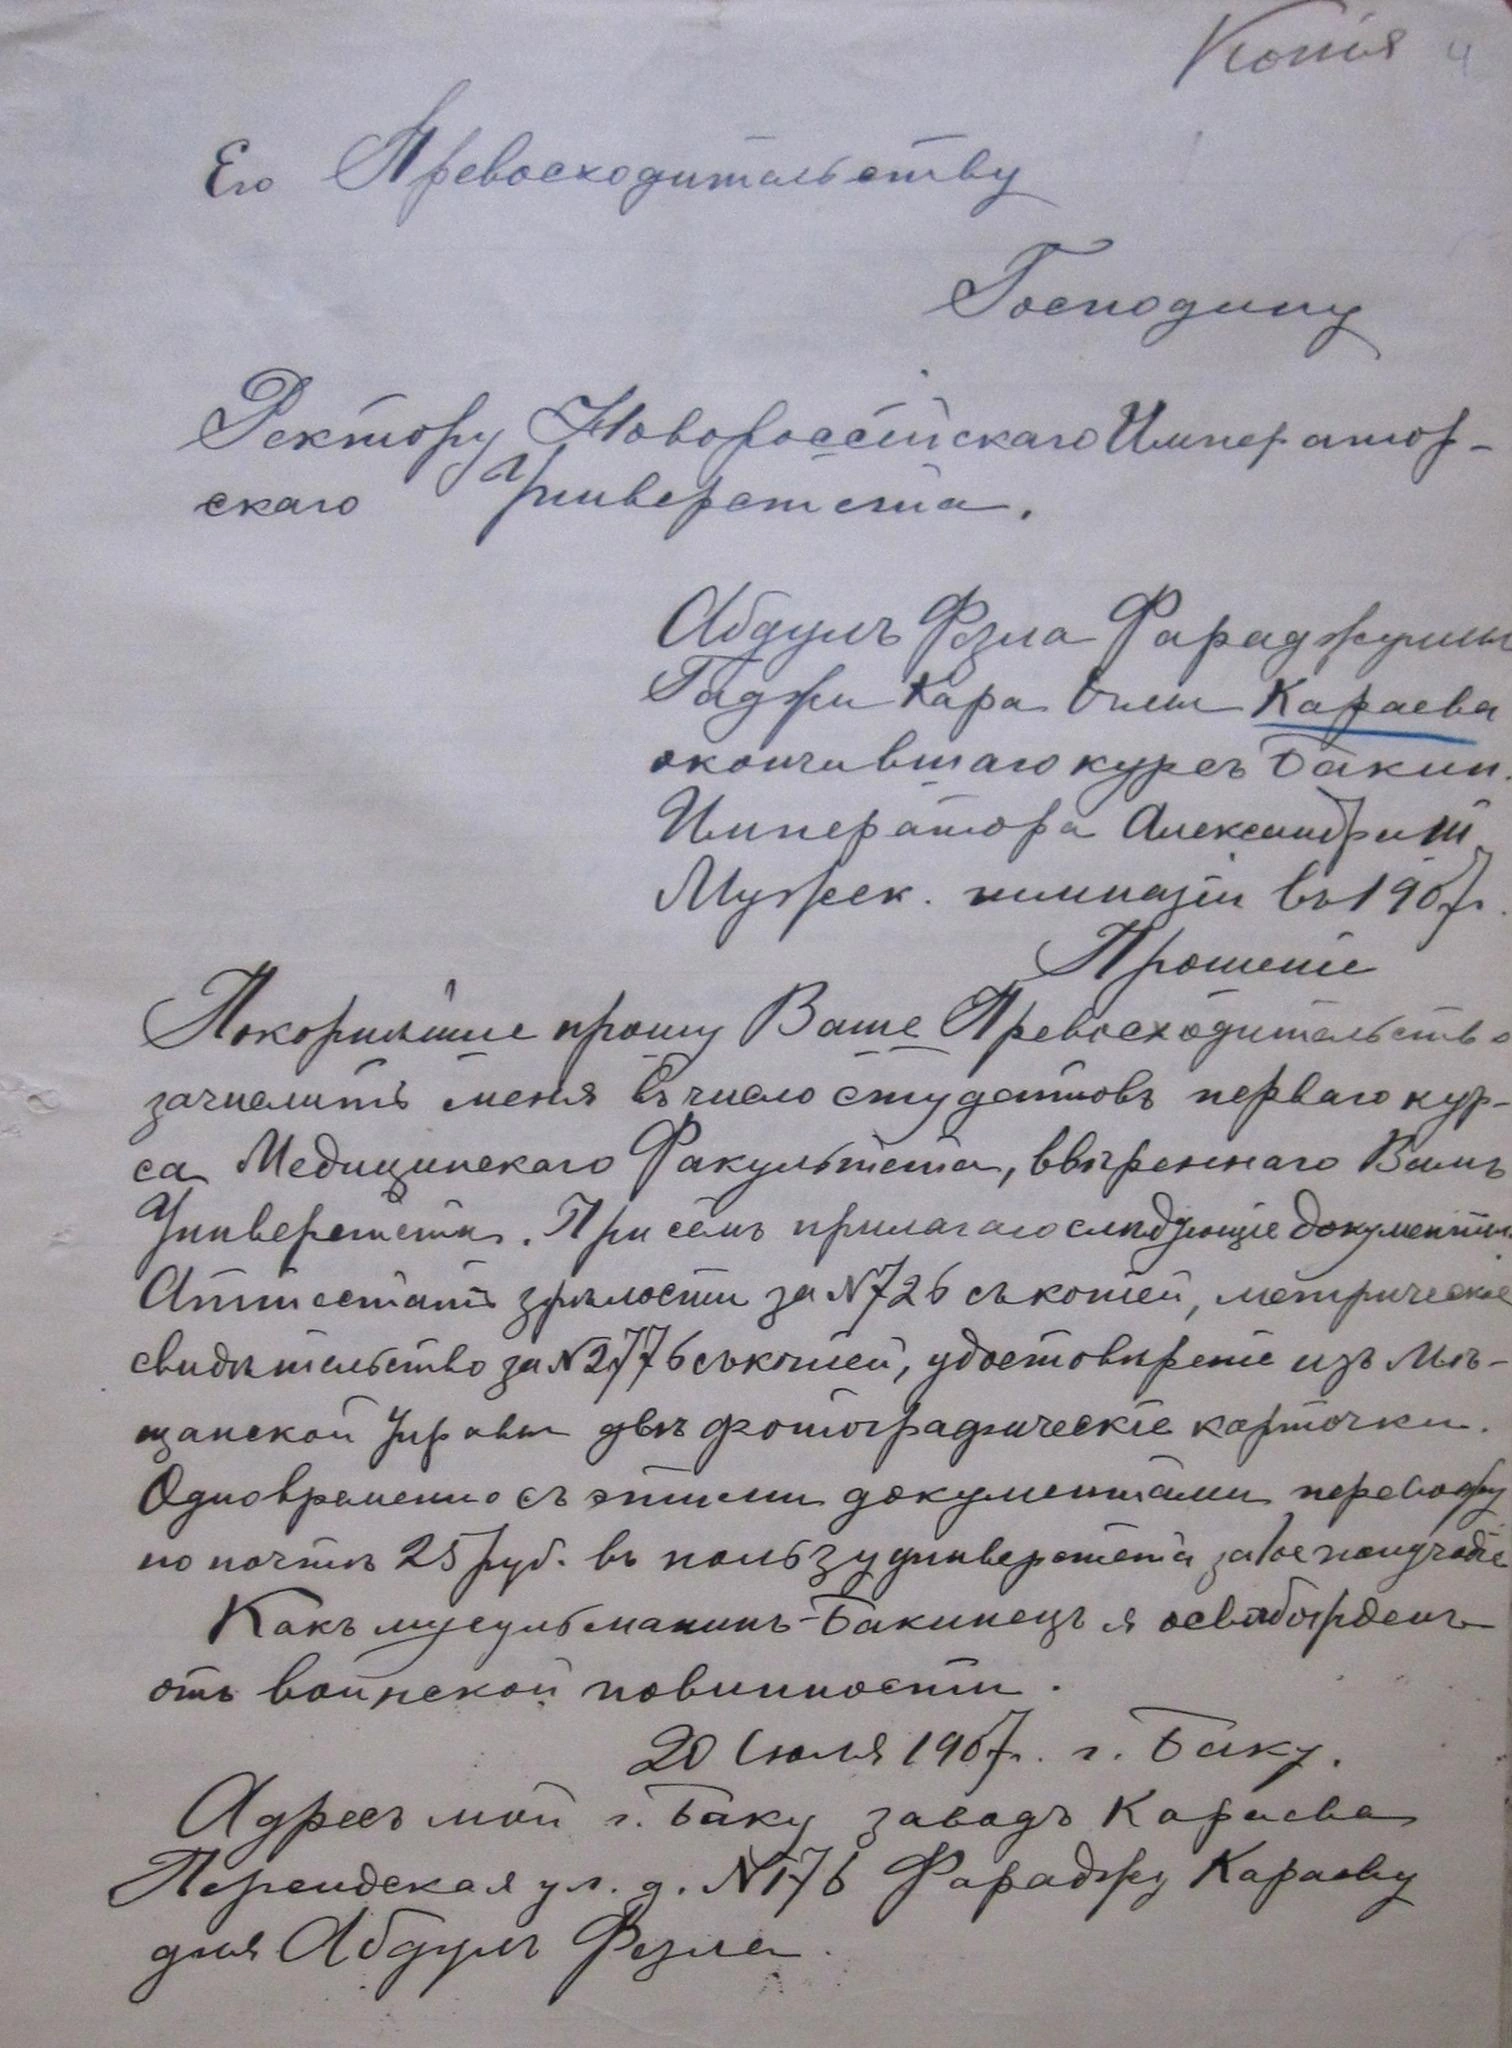 Копія 4
Его Превосходительству
Господину
Ректору Новороссійскаго Император-
скаго Университета.
Абдулъ Фезла Фараджуллы
Гаджи Кара Оглы Караева
окончившаго курсъ Бакин.
Императора Александра III
Мужск. гимназіи въ 1907 г.
Прошеніе
Покорнѣйше прошу Ваше Превосходительство
зачислить меня въ число студентовъ перваго кур-
са Медицинскаго Факультета, ввѣреннаго Вамъ
Университета. При семъ прилагаю слѣдующіе документы.
Аттестатъ зрѣлости за № 726 съ копіей, метрическое
свидѣтельство за № 2776 съ копіей, удостовѣреніе изъ Мѣ-
щанской Управы двѣ фотографическіе карточки.
Одновременно съ этими документами перевожу
по почтѣ 25 руб. въ пользу университета за
Какъ мусульманинъ-Бакинецъ я освобожденъ
отъ воинской повинности.
20 Іюля 1907 г. г. Баку.
Адресъ мой г. Баку заводъ Караева
Персидская ул. д. № 176 Фараджу Караеву
для Абдулъ Фезла.